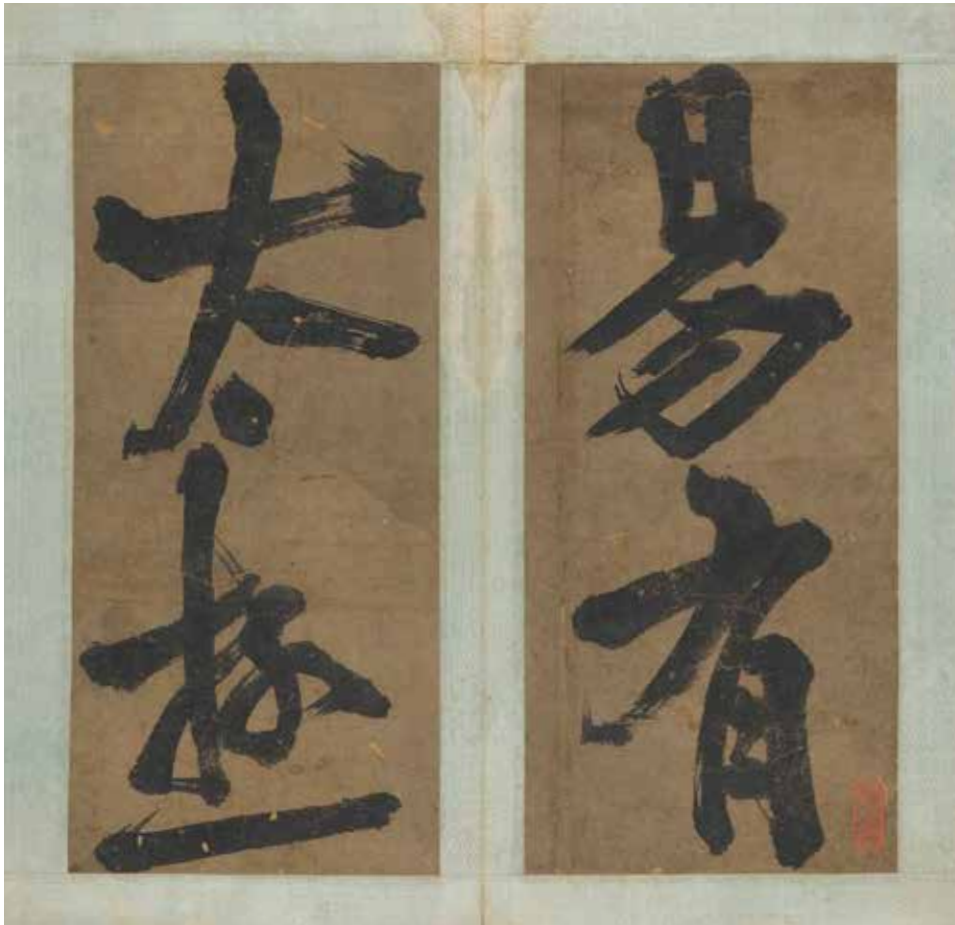 易有
太極